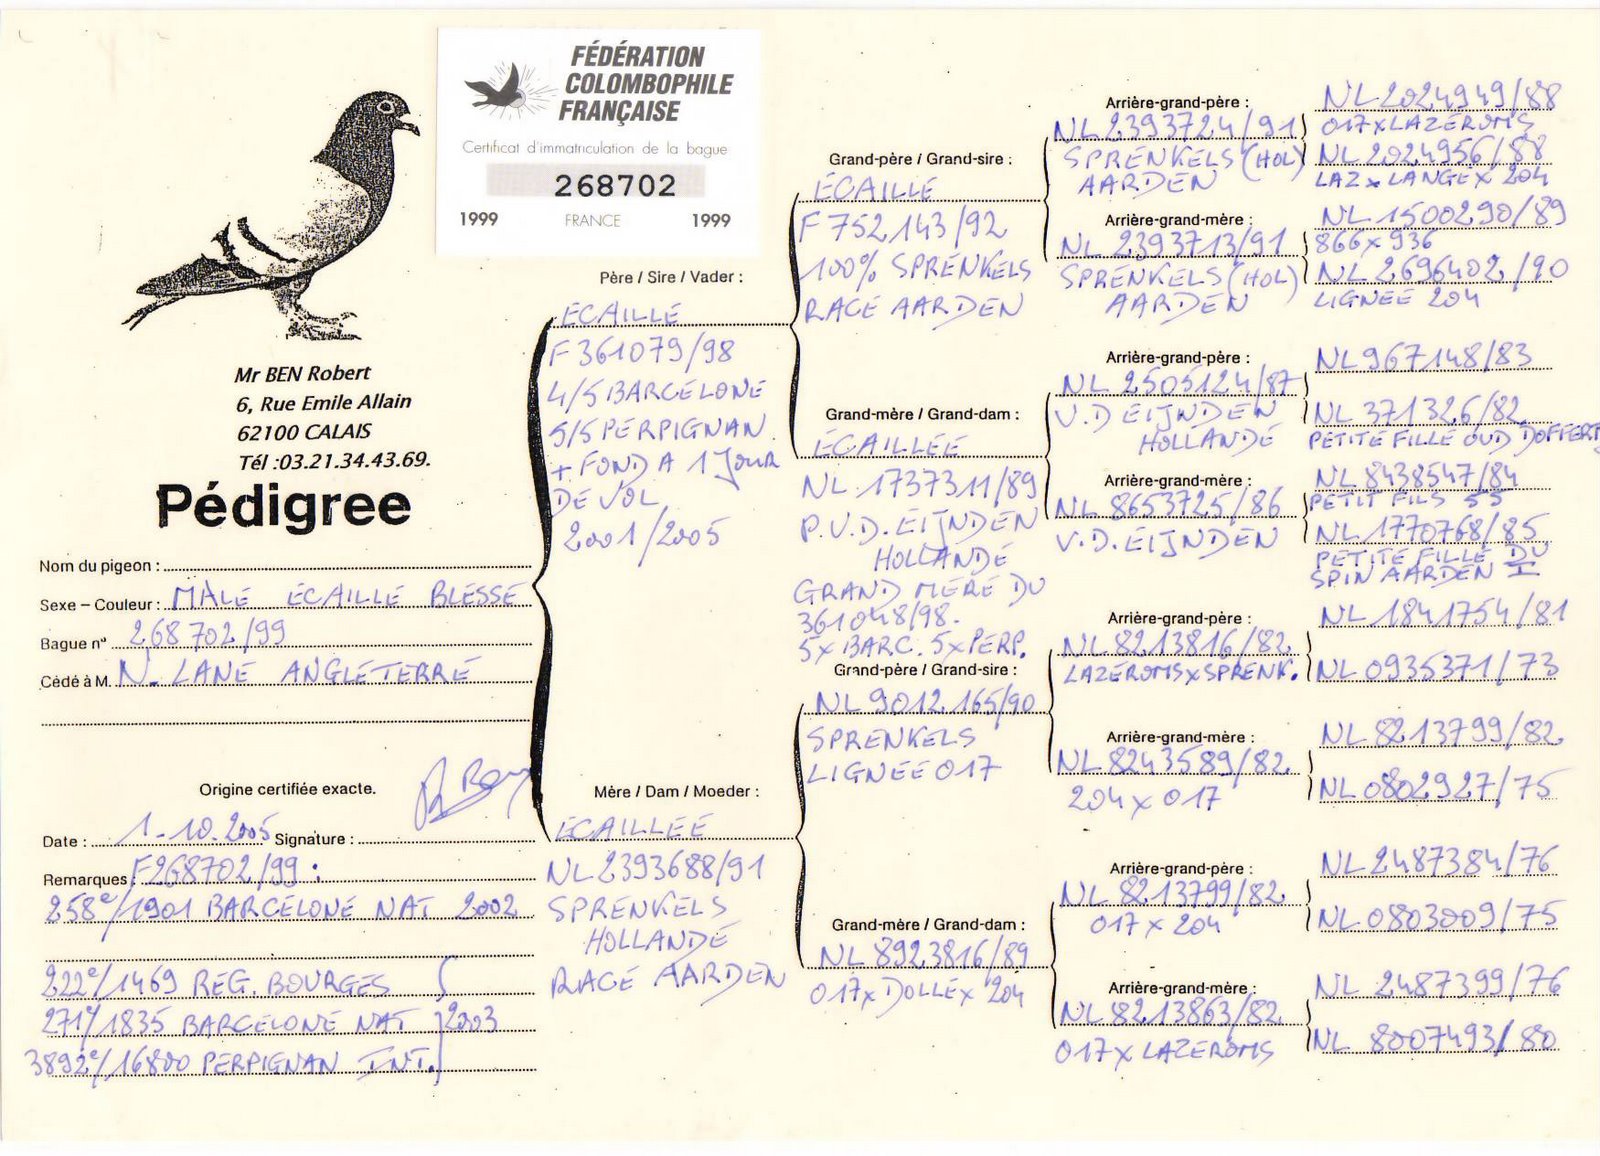 FÉDÉRATION
COLOMBOPHILE
FRANÇAISE
Certificat d'immatriculation de la bague
268702
1999 FRANCE 1999
Mr BEN Robert
6, Rue Emile Allain
62100 CALAIS
Tél :03.21.34.43.69.
Pédigree
Nom du pigeon :
Sexe – Couleur : MALE ÉCAILLÉ BLESSÉ
Bague n° 268702/99
Cédé à M. N. LANE ANGLETERRE
Origine certifiée exacte.
Date : 1-10.2005 Signature :
Remarques F268702/99 :
258e/1901 BARCELONE NAT 2002
222e/1469 REG. BOURGES
271e/1835 BARCELONE NAT 2003
3892e/16800 PERPIGNAN INT.
Père / Sire / Vader :
ECAILLÉ
F361079/98
4/5 BARCELONE
5/5 PERPIGNAN.
+ FOND A 1 JOUR
DE VOL
2001/2005
Mère / Dam / Moeder :
ECAILLÉE
NL2393688/91
SPRENKELS
HOLLANDE
RACE AARDEN
Grand-père / Grand-sire :
ECAILLÉ
F752143/92
100% SPRENKELS
RACE AARDEN
Grand-mère / Grand-dam :
ECAILLÉE
NL.1737311/89
P.V.D. EIJNDEN
HOLLANDE
GRAND MERE DU
361048/98.
5x BARC. 5x PERP.
Grand-père / Grand-sire :
NL9012165/90
SPRENKELS
LIGNÉE 017
Grand-mère / Grand-dam :
NL 8923816/89
017xDOLLEx 204
Arrière-grand-père :
NL2393724/91
SPRENKELS (HOL)
AARDEN
Arrière-grand-mère :
NL 2393713/91
SPRENKELS (HOL)
AARDEN
Arrière-grand-père :
NL 2505124/87
V.D EIJNDEN
HOLLANDE
Arrière-grand-mère :
NL 8653725/86
V.D. EIJNDEN
Arrière-grand-père :
NL8213816/82
LAZEROMSxSPRENK.
Arrière-grand-mère :
NL8243589/82
204 x 017
Arrière-grand-père :
NL 8213799/82
017 x 204
Arrière-grand-mère :
NL8213863/82
017 x LAZEROMS
NL2024949/88
017xLAZEROMS
NL2024956/88
LAZ x LANGE x 204
NL 1500290/89
866 x 936
NL 2696402/90
LIGNÉE 204
NL967148/83
NL371326/82
PETITE FILLE OUD DOFFERT
NL8438547/84
PETIT FILS 55
NL.1770768/85
PETITE FILLE DU
SPIN AARDEN I
NL1841754/81
NL0935371/73
NL8213799/82
NL0802927/75
NL2487384/76
NL0803009/75
NL 2487399/76
NL 8007493/80